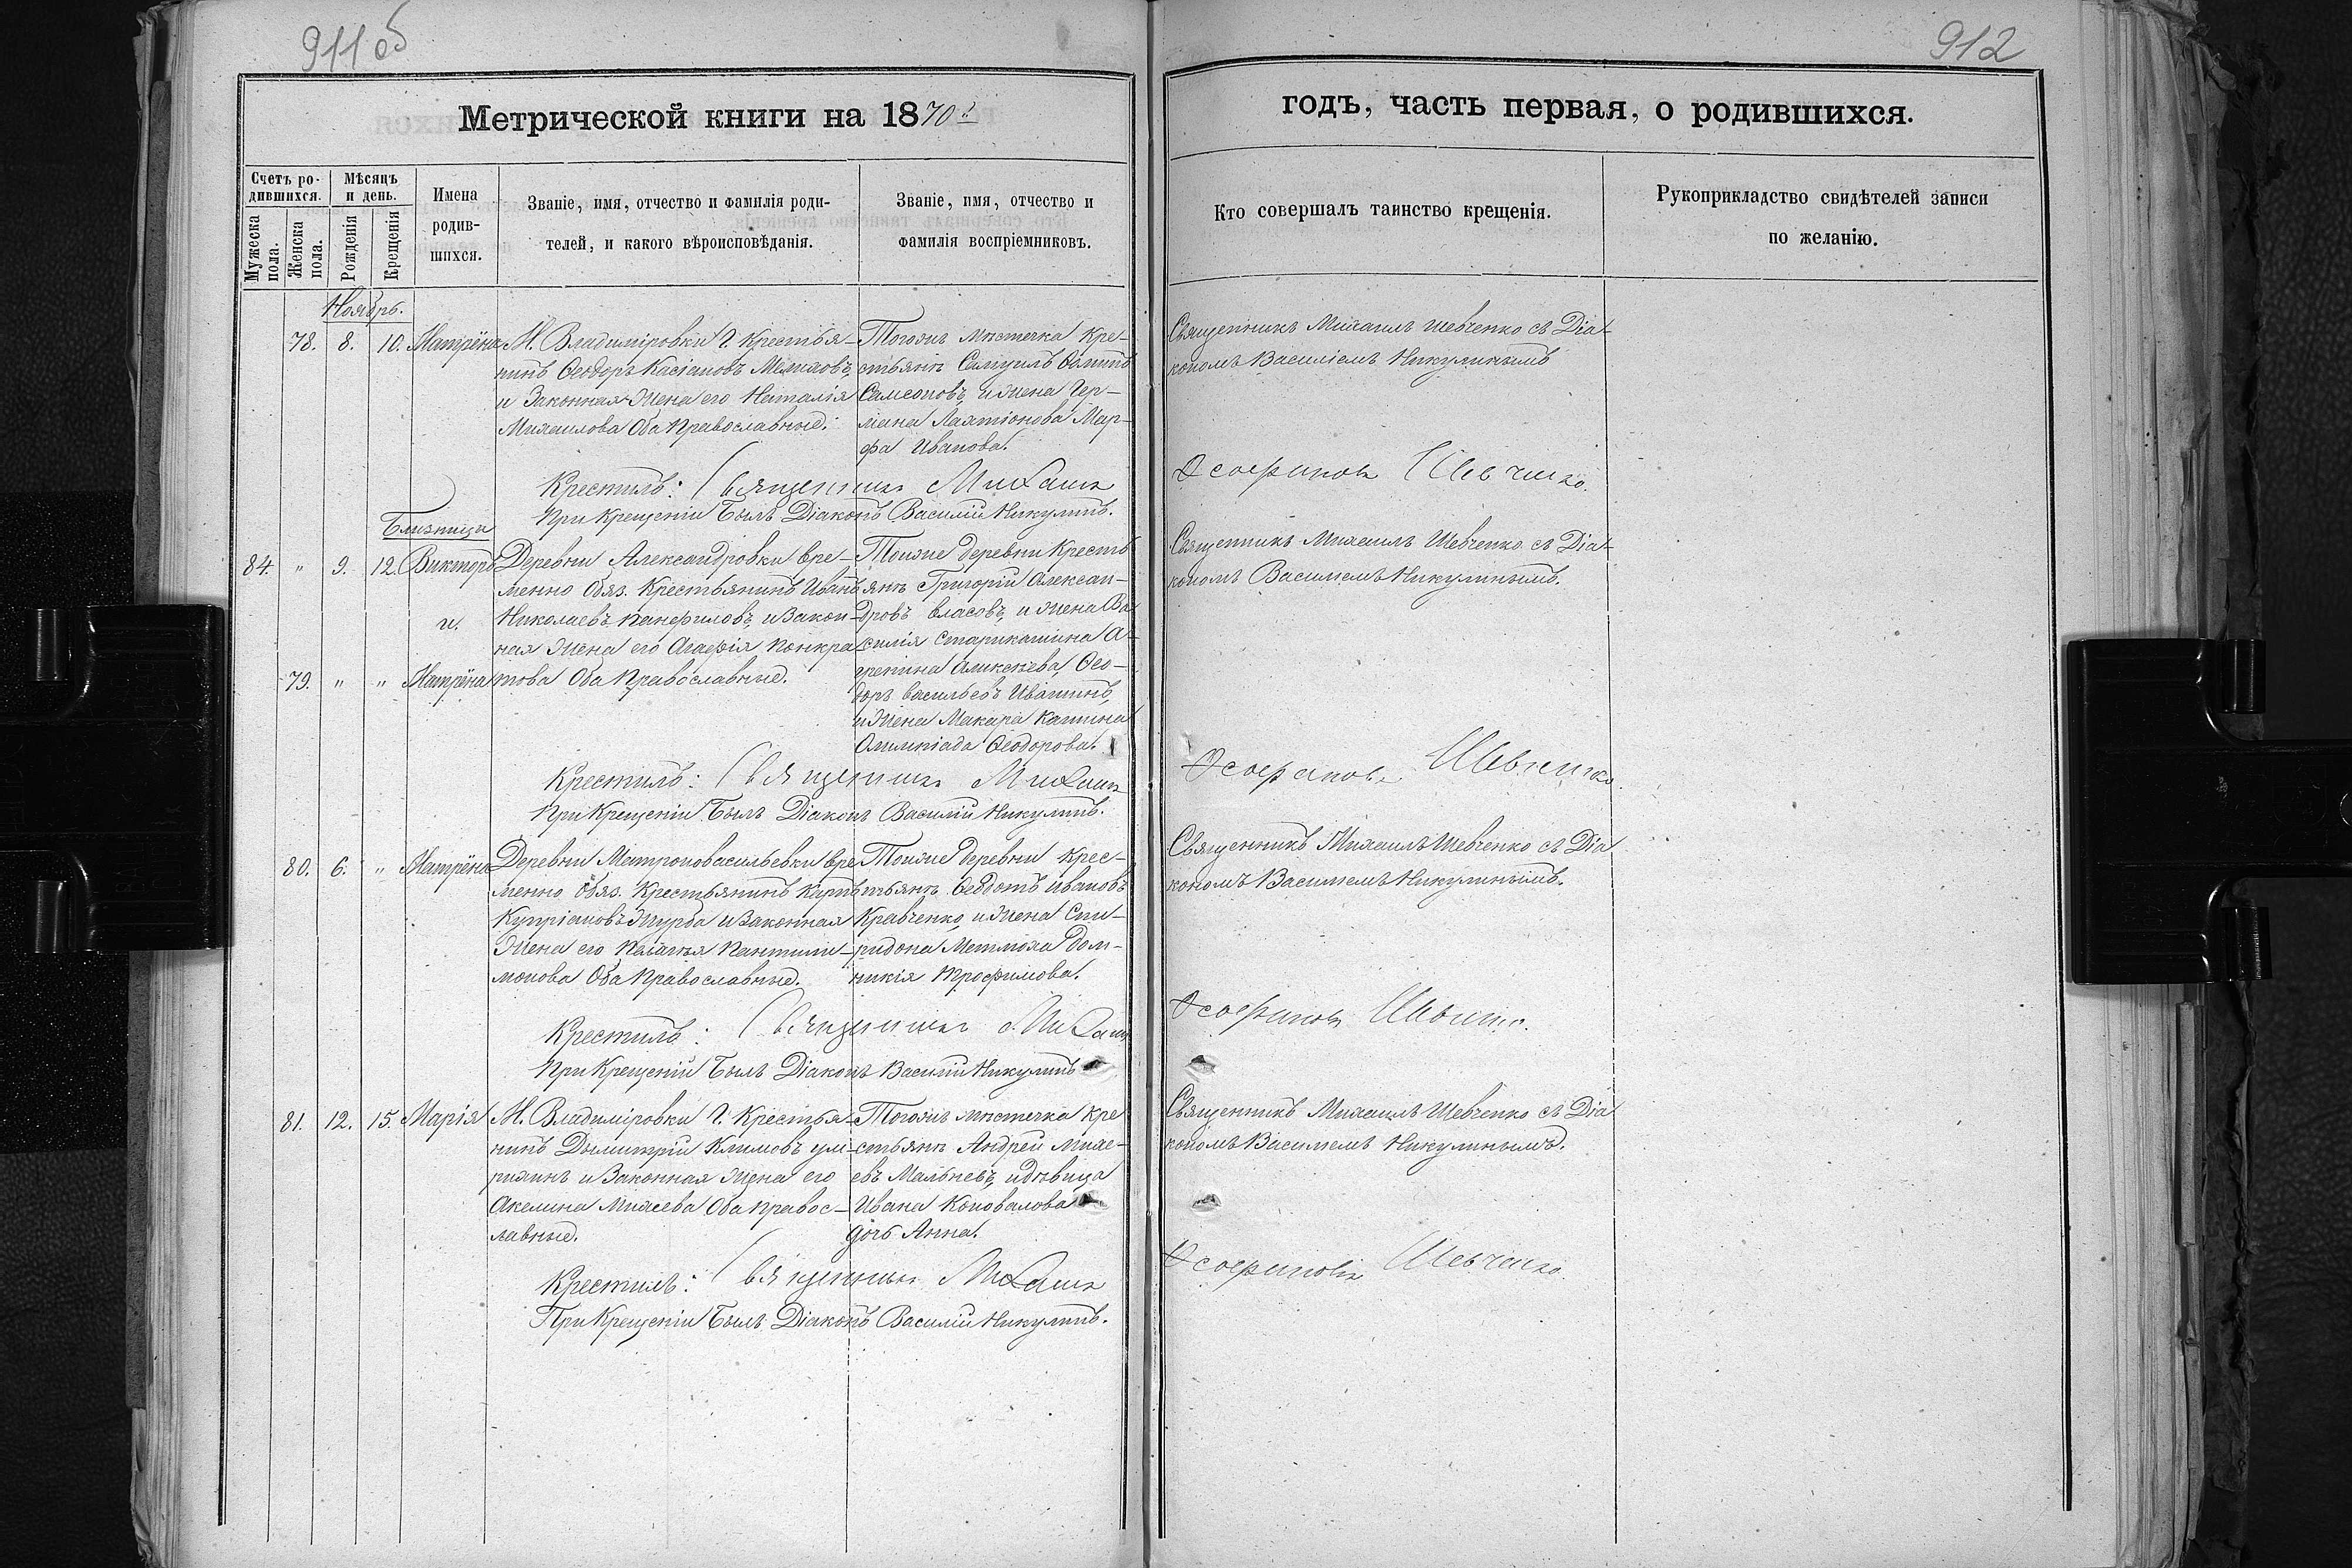 911 об
912
Метрической книги на 1870й
годъ, часть первая, о родившихся.
Счетъ ро-
дившихся.
Мѣсяцъ
и день.
Имена
родив-
шихся.
Званіе, имя, отчество и фамилія роди-
телей, и какого вѣроисповѣданія.
Званіе, имя, отчество и
фамилія воспріемниковъ.
Кто совершалъ таинство крещенія.
Рукоприкладство свидѣтелей записи
по желанію.
Мужеска
пола.
Женска
пола.
Рожденія
Крещенія
Ноябрь.
78. 8. 10. Матрёна
М. Владиміровки Г. Крестья-
нинъ Ѳеодоръ Касіановъ
и Законная Жена его Наталія
Михаилова Оба Православные.
Тогожъ мѣстечка Кре-
стьяне Самуилъ
Самсоновъ, и жена Гер-
мана Мар-
фа Иванова.
Священникъ Михаилъ Шевченко съ Діа-
кономъ Василіемъ Никулинымъ
Крестилъ: Священникъ Михаилъ
Ѳеофановъ Шевченко.
При Крещеніи Былъ Діаконъ Василій Никулинъ.
Близнецы
84. " 9. 12. Викторъ
и.
79. " " Матрёна
Деревни Александровки вре-
менно Обяз. Крестьянинъ Иванъ
Николаевъ Панфиловъ, и Закон-
ная Жена его Агафія Понкра-
това Оба Православные.
Тоижъ деревни Кресть
яне Григорій Алексан-
дровъ Власовъ, и жена Ва
силія Старикашина А-
грепина Алексѣева, Ѳео-
доръ Васильевъ Ивашинъ,
и Жена Макара Кашина
Олимпіада Ѳеодорова.
Священникъ Михаилъ Шевченко съ Діа-
кономъ Василіемъ Никулинымъ.
Крестилъ: Священникъ Михаилъ
Ѳеофановъ Шевченко.
При Крещеніи Былъ Діаконъ Василій Никулинъ.
80. 6. " Матрёна
Деревни Матроновасильевки вре
менно Обяз. Крестьянинъ Карпъ
Купріановъ Журба и Законная
Жена его Пелагѣя Пантили-
монова Оба Православные.
Тоижъ деревни Крес-
тьяне Ѳедотъ Ивановъ
Кравченко, и Жена Спи-
ридона Дом-
никія Трофимова.
Священникъ Михаилъ Шевченко съ Діа
кономъ Василіемъ Никулинымъ.
Крестилъ: Священникъ Михаилъ
Ѳеофановъ Шевченко.
При Крещеніи Былъ Діаконъ Василій Никулинъ
81. 12. 15. Марія
М. Владиміровки Г. Крестья-
нинъ Дымитрій Климовъ
и Законная Жена его
Акелина Михеева Оба Правос-
лавные.
Тогожъ мѣстечка Кре
стьяне Андрей Михе-
евъ Мальневъ, и дѣвица
Ивана Коновалова
дочь Анна.
Священникъ Михаилъ Шевченко съ Діа
кономъ Василіемъ Никулинымъ.
Крестилъ: Священникъ Михаилъ
Ѳеофановъ Шевченко.
При Крещеніи Былъ Діаконъ Василій Никулинъ.